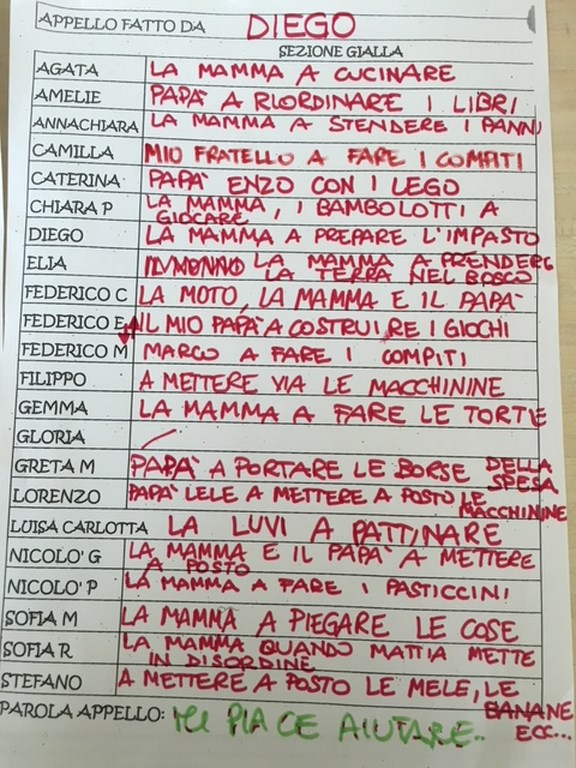 APPELLO FATTO DA DIEGO
SEZIONE GIALLA
AGATA LA MAMMA A CUCINARE
AMELIE PAPA' A RIORDINARE I LIBRI
ANNACHIARA LA MAMMA A STENDERE I PANNI
CAMILLA MIO FRATELLO A FARE I COMPITI
CATERINA PAPA' ENZO CON I LEGO
CHIARA P LA MAMMA, I BAMBOLOTTI A
GIOCARE
DIEGO LA MAMMA A PREPARE L'IMPASTO
ELIA LA MAMMA A PRENDERE
LA TERRA NEL BOSCO
FEDERICO C LA MOTO, LA MAMMA E IL PAPA'
FEDERICO E IL MIO PAPA' A COSTRUIRE I GIOCHI
FEDERICO M MARCO A FARE I COMPITI
FILIPPO A METTERE VIA LE MACCHININE
GEMMA LA MAMMA A FARE LE TORTE
GLORIA
GRETA M PAPA' A PORTARE LE BORSE DELLA
SPESA
LORENZO PAPA' LELE A METTERE A POSTO LE
MACCHININE
LUISA CARLOTTA LA LUVI A PATTINARE
NICOLO' G LA MAMMA E IL PAPA' A METTERE
A POSTO
NICOLO' P LA MAMMA A FARE I PASTICCINI
SOFIA M LA MAMMA A PIEGARE LE COSE
SOFIA R LA MAMMA QUANDO MATTIA METTE
IN DISORDINE
STEFANO A METTERE A POSTO LE MELE, LE
BANANE
ECC...
PAROLA APPELLO: MI PIACE AIUTARE..